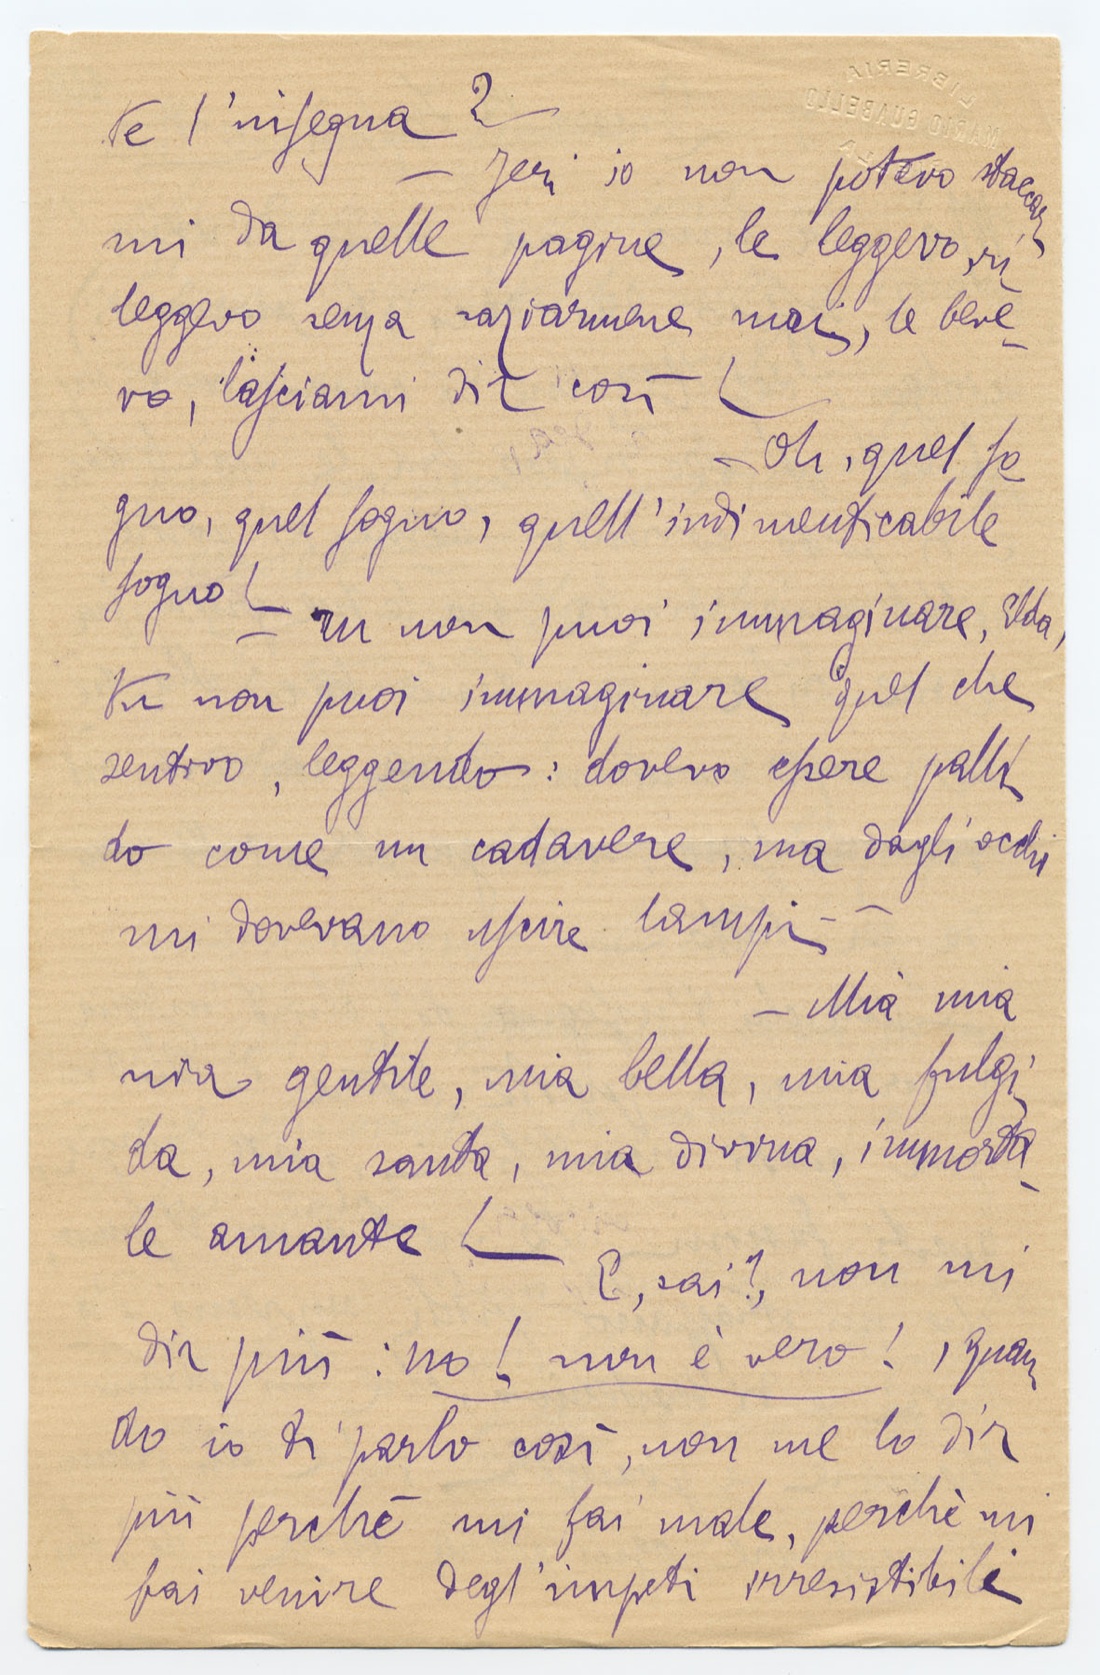 LIBRERIA
MARIO GUABELLO
te l'insegna?
— Jeri io non potevo staccar
mi da quelle pagine, le leggevo, ri
leggevo senza saziarmene mai, le beve-
vo, lasciami dir così!
— Oh, quel so
gno, quel sogno, quell'indimenticabile
sogno!
— Tu non puoi immaginare, Elda,
tu non puoi immaginare quel che
sentivo, leggendo: dovevo essere palli
do come un cadavere, ma dagli occhi
mi dovevano uscire lampi —
— Mia mia
mia gentile, mia bella, mia fulgi
da, mia santa, mia divina, immorta-
le amante!
E, sai?, non mi
dir più: no! non è vero!, quan
do io ti parlo così, non me lo dir
più perchè mi fai male, perchè mi
fai venire degl'impeti irresistibili